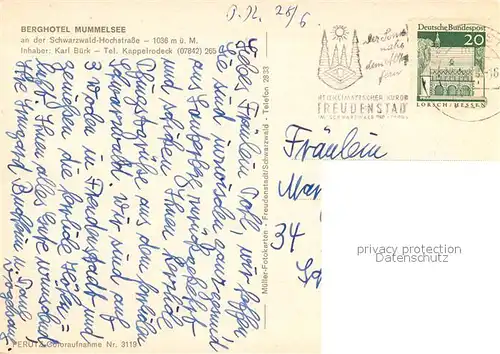 BERGHOTEL MUMMELSEE
an der Schwarzwald-Hochstraße – 1036 m ü. M.
Inhaber: Karl Bürk – Tel. Kappelrodeck (07842) 265
B. R. 28/6
Liebes Fräulein Pohl, wir hoffen
Sie sind inzwischen ganz gesund
aus zurückgekehrt
und schicken Ihnen herzliche
Pfingstgrüße aus dem herrlichen
Schwarzwald. Wir sind auf
3 Wochen in Freudenstadt und
genießen die herrliche Höhen=
luft. Ihnen alles Gute wünschend
Ihre Irmgard u. Paul
PERUTZ-Coloraufnahme Nr. 3119
Müller-Fotokarten · Freudenstadt/Schwarzwald · Telefon 2833
Der Sonne
nahe
dem Alltag
fern
HEILKLIMATISCHER KURORT
FREUDENSTADT
IM SCHWARZWALD
DEUTSCHE BUNDESPOST
20
LORSCH/HESSEN
Fräulein
34
privacy protection
Datenschutz